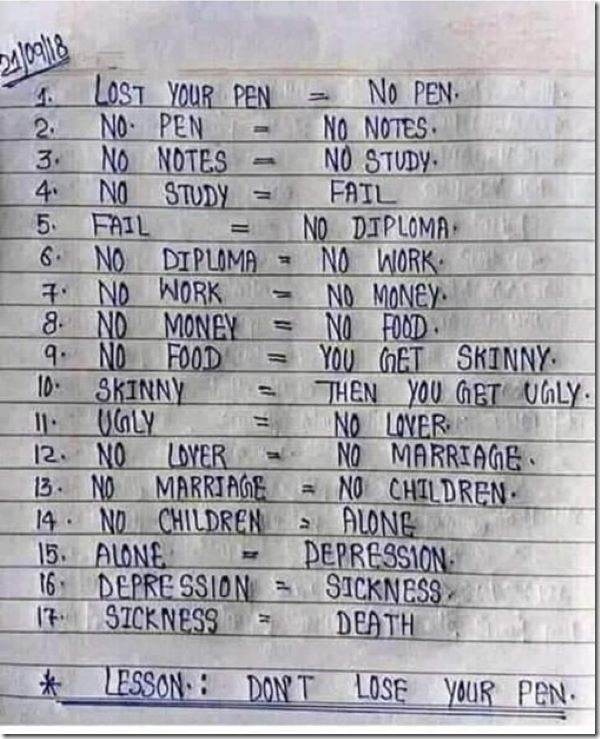 21/09/18
1. LOST YOUR PEN = NO PEN.
2. NO. PEN = NO NOTES.
3. NO NOTES = NO STUDY.
4. NO STUDY = FAIL
5. FAIL = NO DIPLOMA.
6. NO DIPLOMA = NO WORK.
7. NO WORK = NO MONEY.
8. NO MONEY = NO FOOD.
9. NO FOOD = YOU GET SKINNY.
10. SKINNY = THEN YOU GET UGLY.
11. UGLY = NO LOVER.
12. NO LOVER = NO MARRIAGE.
13. NO MARRIAGE = NO CHILDREN.
14. NO CHILDREN = ALONE
15. ALONE = DEPRESSION.
16. DEPRESSION = SICKNESS.
17. SICKNESS = DEATH
* LESSON.: DON'T LOSE YOUR PEN.